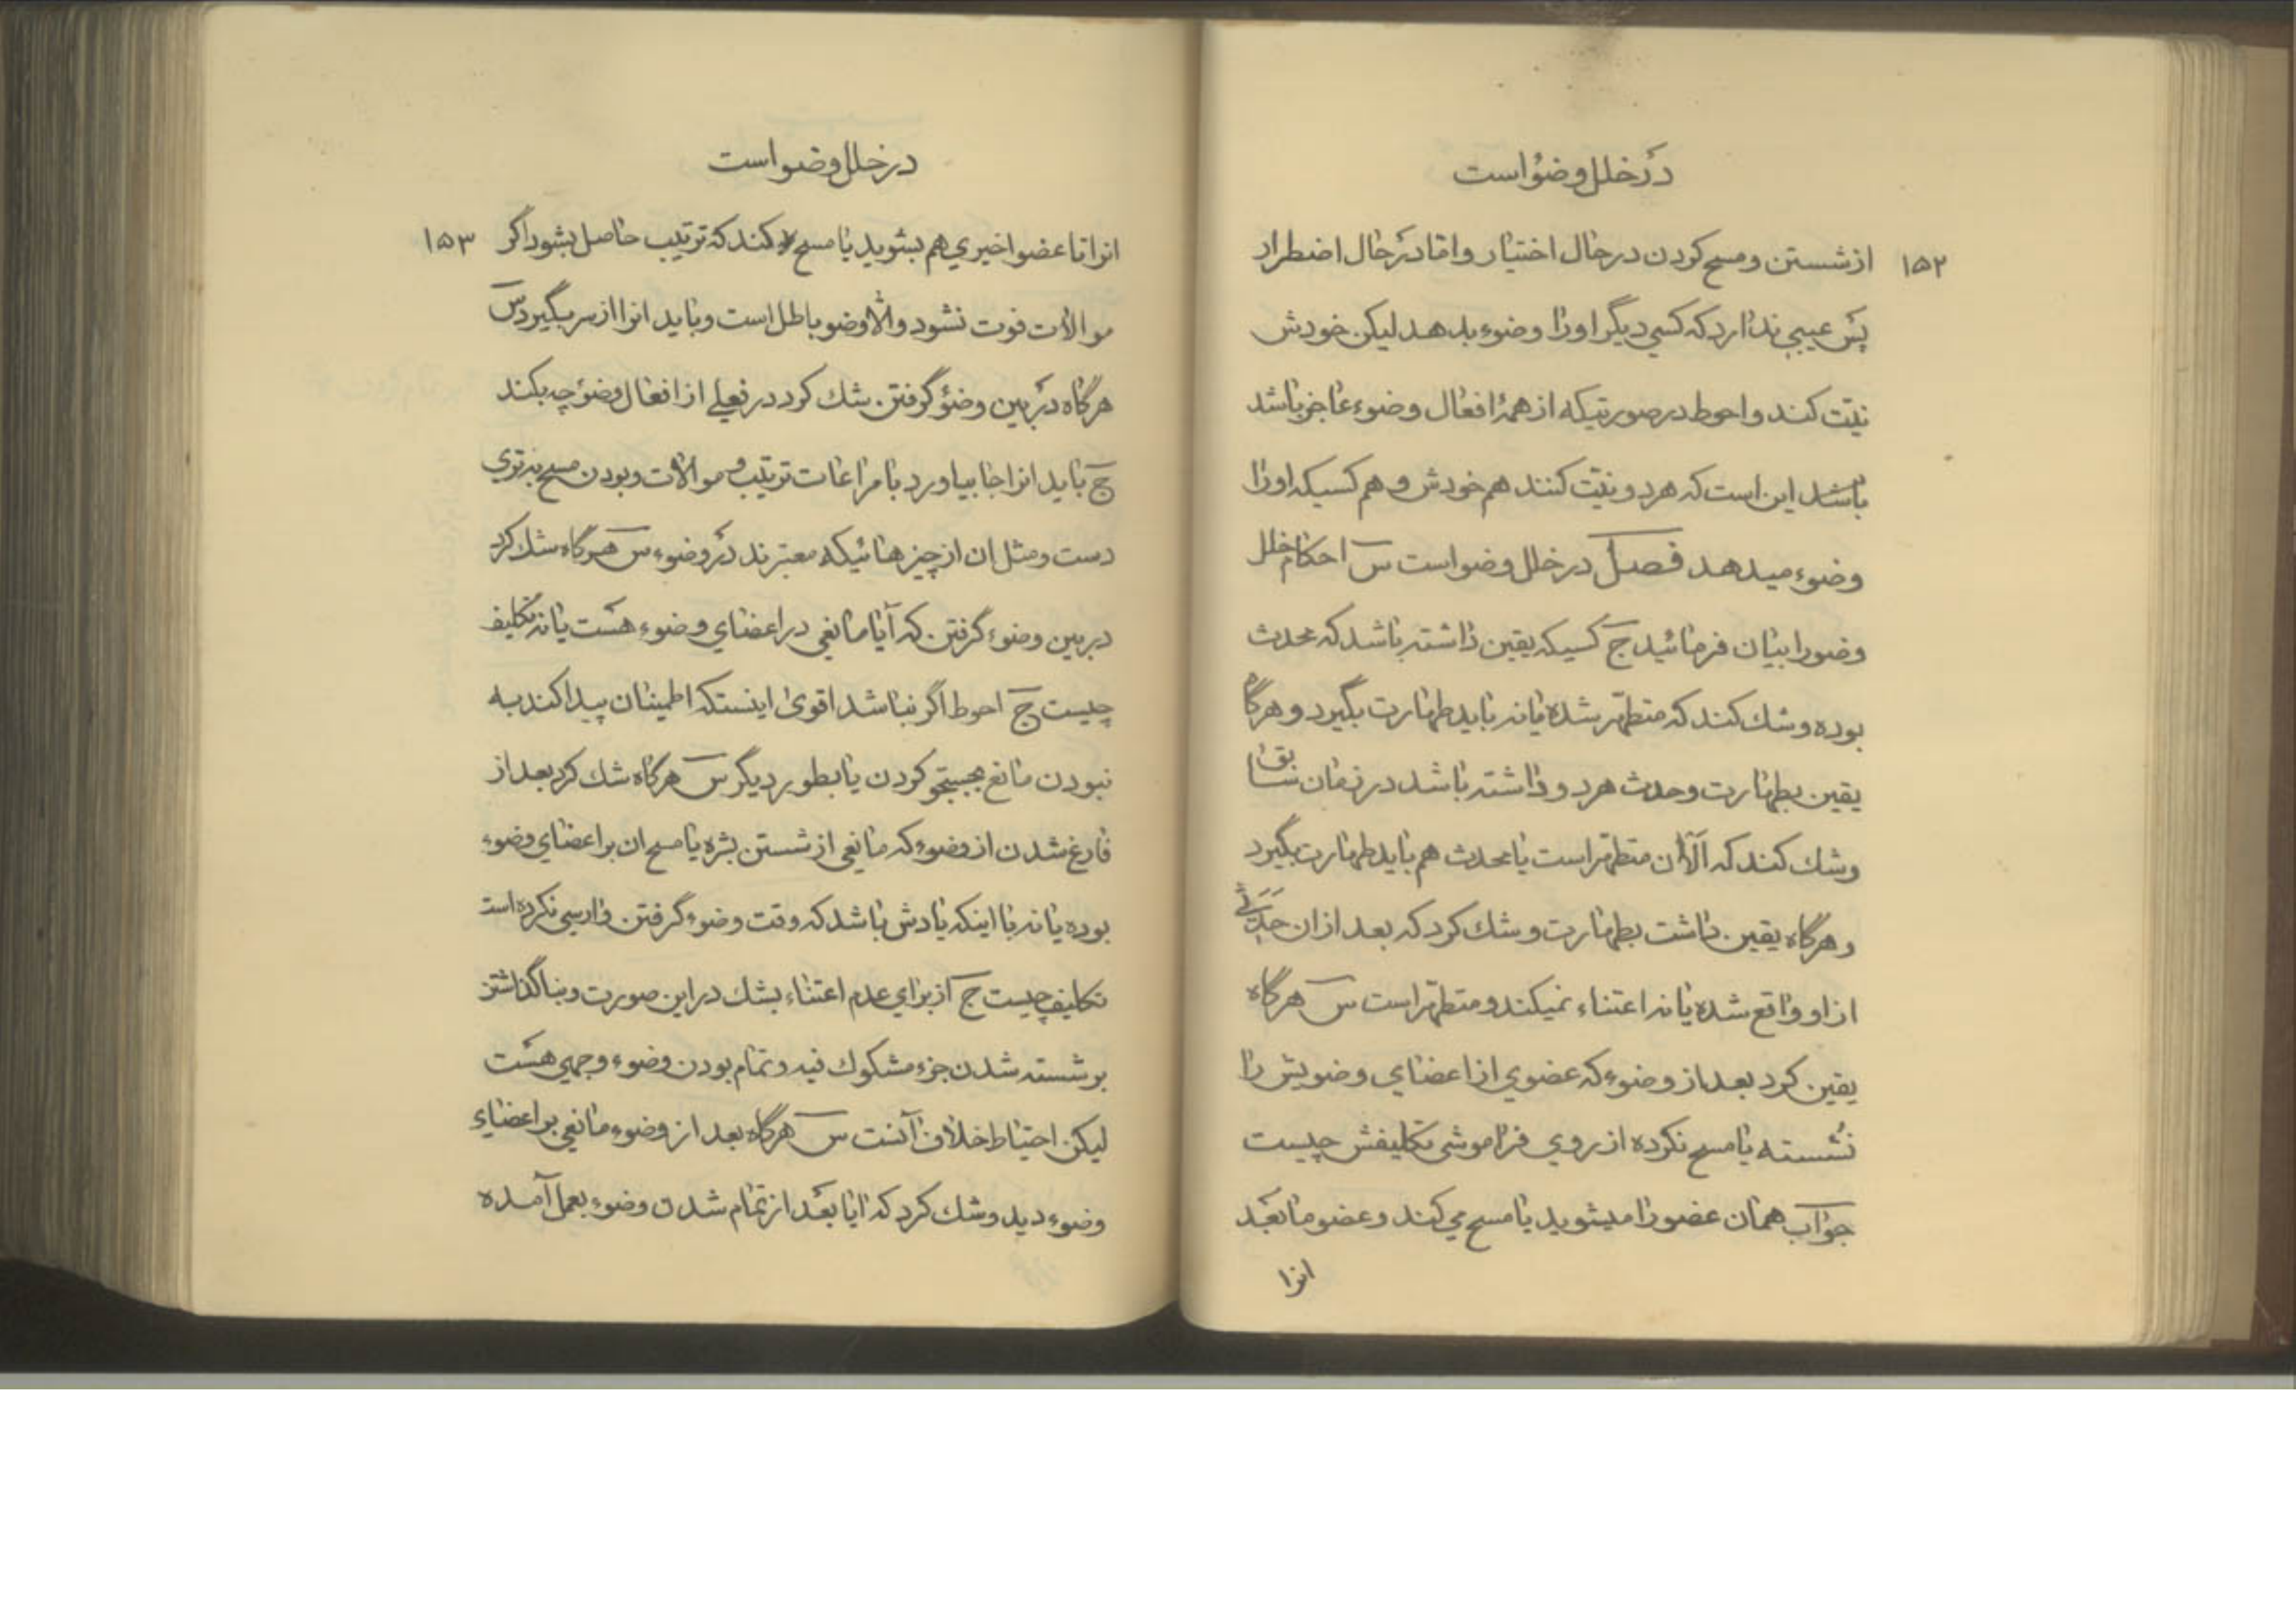 در خلل وضو است
۱۵۲ از شستن و مسح کردن در حال اختیار و اما در حال اضطرار
پس عیبی ندارد که کسی دیگر او را وضوء بدهد لیکن خودش
نیّت کند و احوط در صورتیکه از همهٔ افعال وضوء عاجز باشد
باشد این است که هر دو نیّت کنند هم خودش و هم کسیکه او را
وضوء میدهد فصل در خلل وضو است س احکام خلل
وضو را بیان فرمائید ج کسیکه یقین داشته باشد که محدث
بوده و شک کند که متطهر شده یا نه باید طهارت بگیرد و هرگاه
یقین بطهارت و حدث هر دو داشته باشد در زمان سابق
و شک کند که الآن متطهر است یا محدث هم باید طهارت بگیرد
و هرگاه یقین داشت بطهارت و شک کرد که بعد از ان حدثی
از او واقع شده یا نه اعتناء نمیکند و متطهر است س هرگاه
یقین کرد بعد از وضوء که عضوی از اعضای وضویش را
نشسته یا مسح نکرده از روی فراموشی تکلیفش چیست
جواب همان عضو را میشوید یا مسح می کند و عضو ما بعد
انرا
در خلل وضو است
انرا تا عضو اخیری هم بشوید یا مسح کند که ترتیب حاصل بشود اگر ۱۵۳
موالات فوت نشود و الّا وضو باطل است و باید انرا از سر بگیرد س
هرگاه در بین وضوء گرفتن شک کرد در فعلی از افعال وضوء چه بکند
ج باید انرا جا بیاورد با مراعات ترتیب و موالات و بودن مسح به تری
دست و مثل ان از چیزهائیکه معتبرند در وضوء س هرگاه شک کرد
در بین وضوء گرفتن که آیا مانعی در اعضای وضوء هست یا نه تکلیف
چیست ج احوط اگر نباشد اقوی اینستکه اطمینان پیدا کند به
نبودن مانع بجستجو کردن یا بطور دیگر س هرگاه شک کرد بعد از
فارغ شدن از وضوء که مانعی از شستن بشره یا مسح ان بر اعضای وضوء
بوده یا نه با اینکه یادش باشد که وقت وضوء گرفتن وارسی نکرده است
تکلیف چیست ج از برای عدم اعتناء بشک در این صورت و بنا گذاشتن
بر شسته شدن جزء مشکوک فیه و تمام بودن وضوء وجهی هست
لیکن احتیاط خلاف آنست س هرگاه بعد از وضوء مانعی بر اعضای
وضوء دید و شک کرد که ایا بعد از تمام شدن وضوء بعمل آمده